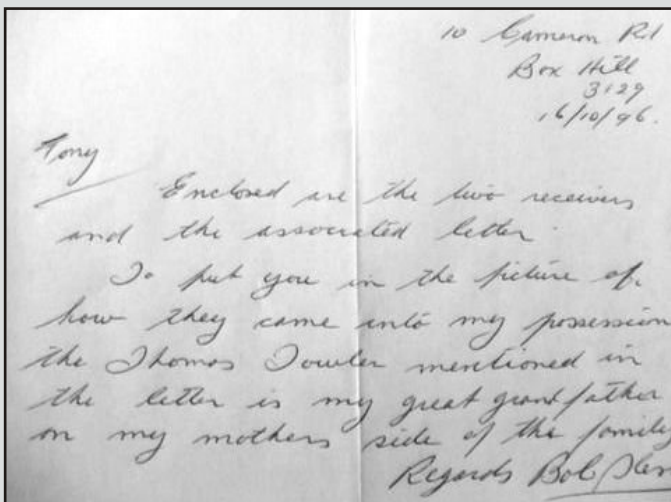 10 Cameron Rd
Box Hill
3129
16/10/96.
Tony
Enclosed are the two receivers
and the associated letter.
To put you in the picture of
how they came into my possession
the Thomas Towler mentioned in
the letter is my great grandfather
on my mothers side of the family
Regards Bob